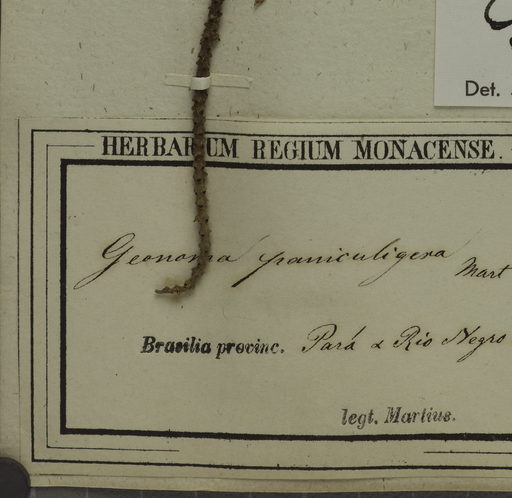 Det.
HERBARIUM REGIUM MONACENSE.
Geonoma paniculigera Mart
Brasilia provinc. Pará & Rio Negro
legt. Martius.